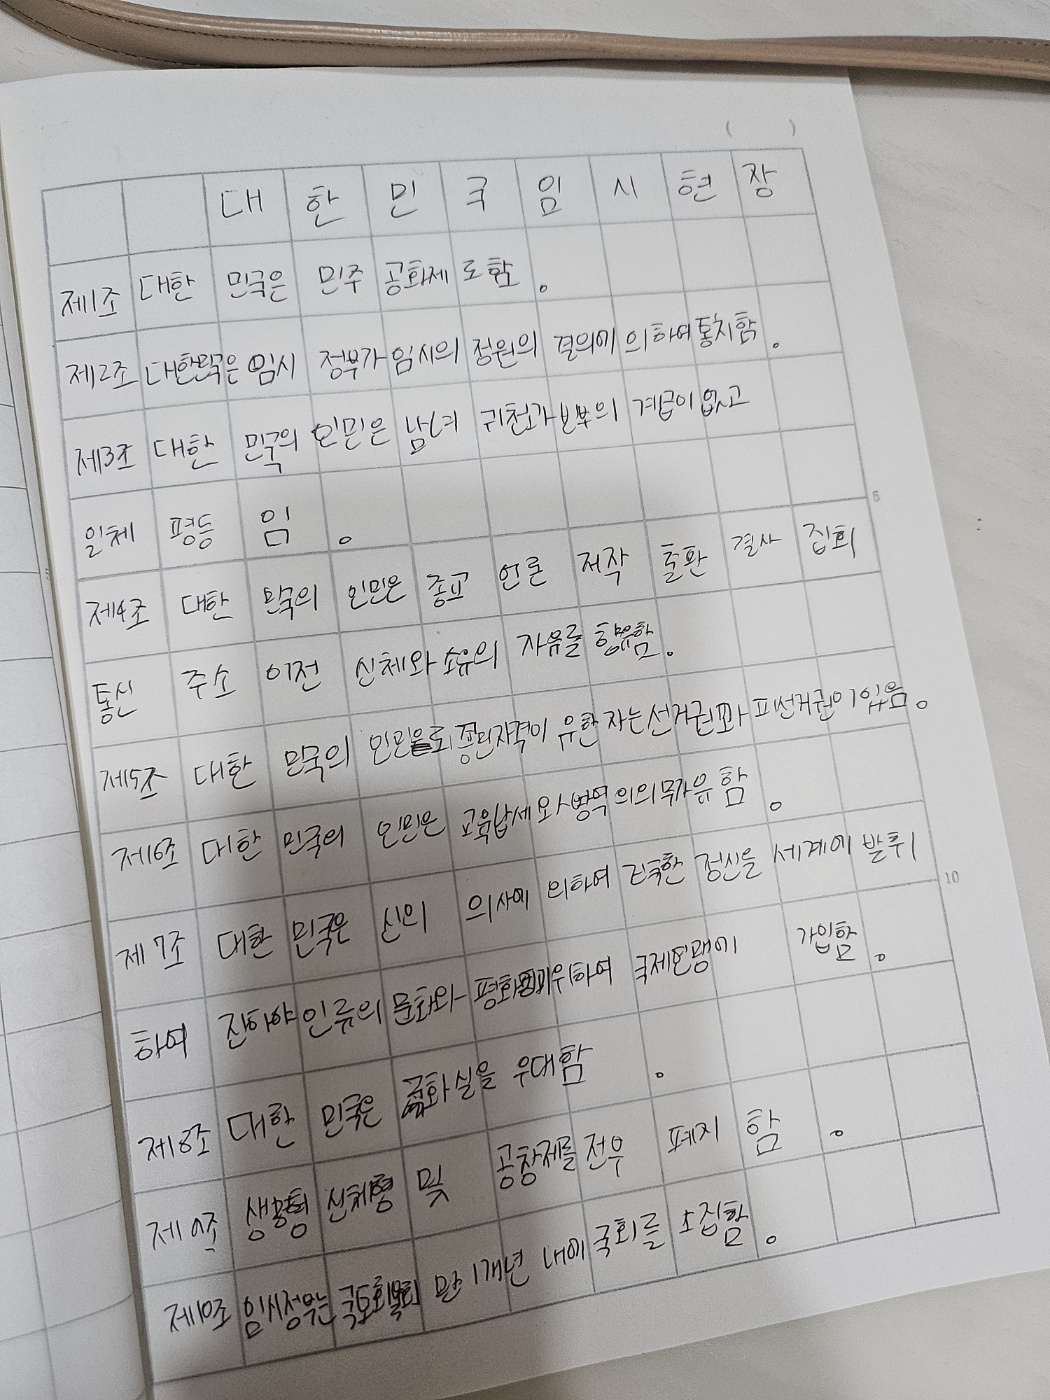 대한민국임시헌장
제1조 대한 민국은 민주 공화제로 함.
제2조 대한민국은 임시 정부가 임시의정원의 결의에 의하여 통치함.
제3조 대한 민국의 인민은 남녀 귀천과 빈부의 계급이 없고
일체 평등 임.
제4조 대한 민국의 인민은 종교 언론 저작 출판 결사 집회
통신 주소 이전 신체와 소유의 자유를 향유함.
제5조 대한 민국의 인민으로 종된자격이 유한 자는 선거권과 피선거권이 있음.
제6조 대한 민국의 인민은 교육납세와 병역의의무가유함.
제7조 대한 민국은 신의 의사에 의하여 건국한 정신을 세계에 발휘
하여 진하야 인류의 문화와 평화 위하여 국제연맹에 가입함.
제8조 대한 민국은 구황실을 우대함.
제9조 생명형 신체형 및 공창제를 전부 폐지 함.
제10조 임시정부는 국토회복뒤 만 1개년 내에 국회를 소집함.